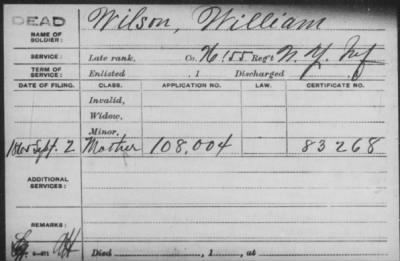 DEAD
NAME OF SOLDIER: Wilson, William
SERVICE: Late rank, Co. H 155 Reg't N. Y. Inf
TERM OF SERVICE: Enlisted , 1 Discharged
DATE OF FILING. CLASS. APPLICATION NO. LAW. CERTIFICATE NO.
Invalid,
Widow,
Minor,
Sept. 2 Mother 108,004 83268
ADDITIONAL SERVICES:
REMARKS:
Died , 1 , at